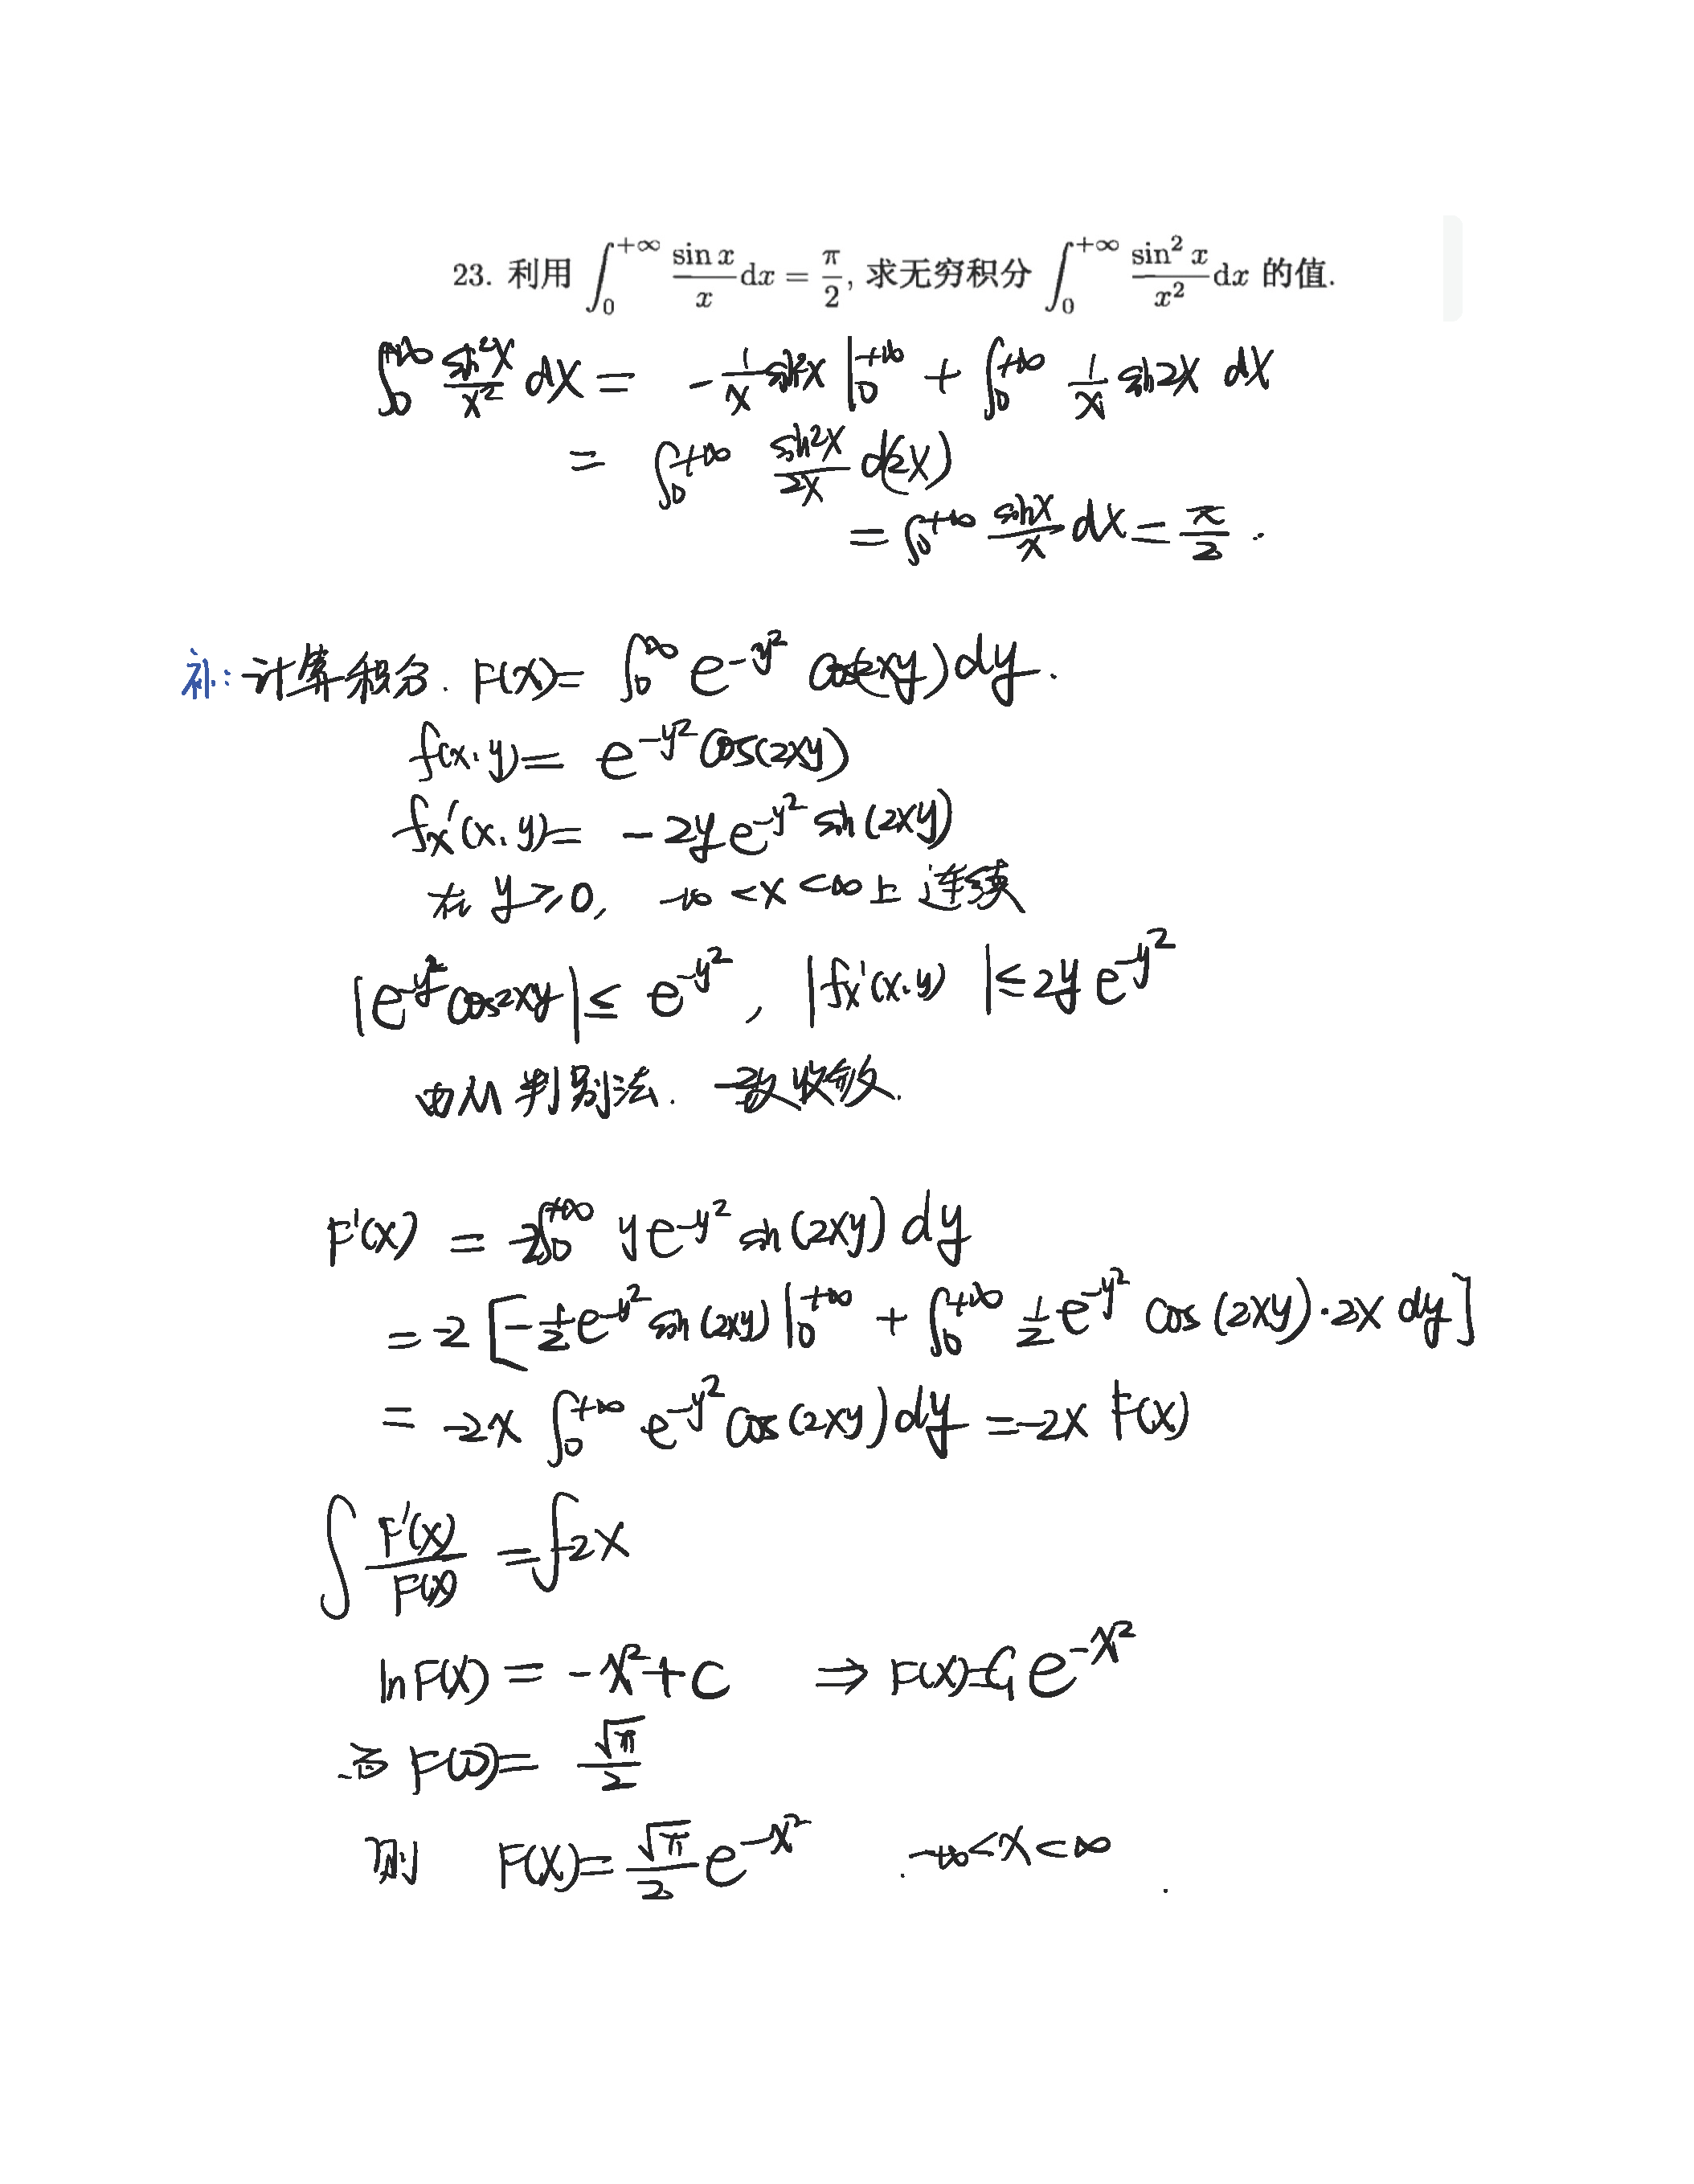 23. 利用 ∫₀^{+∞} sin x / x dx = π/2, 求无穷积分 ∫₀^{+∞} sin² x / x² dx 的值.
∫₀^{+∞} sin²x / x² dx = -1/x sin²x |₀^{+∞} + ∫₀^{+∞} 1/x sin2x dx
= ∫₀^{+∞} sin2x / 2x d(2x)
= ∫₀^{+∞} sinx / x dx = π/2 .
补: 计算积分. F(x) = ∫₀^∞ e^{-y²} cos(2xy) dy.
f(x.y) = e^{-y²} cos(2xy)
f_x'(x.y) = -2y e^{-y²} sin(2xy)
在 y ≥ 0, -∞ < x < ∞ 上连续
|e^{-y²} cos2xy| ≤ e^{-y²}, |f_x'(x.y)| ≤ 2y e^{-y²}
由M判别法. 一致收敛.
F'(x) = -2∫₀^{+∞} y e^{-y²} sin(2xy) dy
= -2 [-1/2 e^{-y²} sin(2xy) |₀^{+∞} + ∫₀^{+∞} 1/2 e^{-y²} cos(2xy)·2x dy]
= -2x ∫₀^{+∞} e^{-y²} cos(2xy) dy = -2x F(x)
∫ F'(x) / F(x) = ∫ -2x
ln F(x) = -x² + C ⇒ F(x) = C₁ e^{-x²}
F(0) = √π / 2
则 F(x) = √π / 2 e^{-x²} . -∞ < x < ∞ .